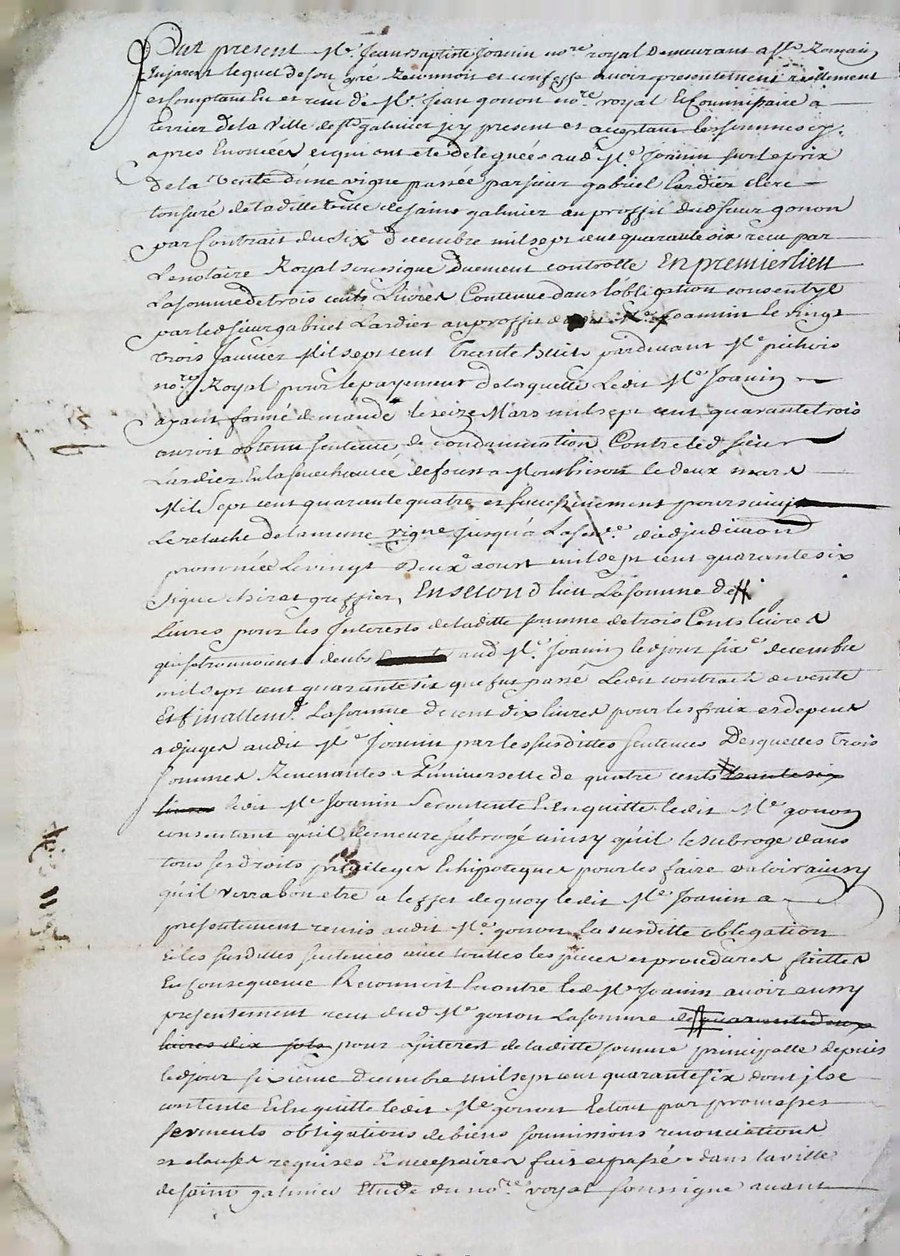 Fut present Me Jean Baptiste Joanin nore royal demeurant a st Romain
lequel de son gre reconnoit et confesse avoir presentement reellement
et comptant eu et recu de Me Jean gonon nore royal et Commissaire a
terrier de la ville de st galmier icy present et acceptant les sommes cy
apres enoncées et qui ont ete deleguées aud Me Joanin sur le prix
de la vente d'une vigne passée par sieur gabriel Lardier clerc
tonsuré de laditte ville de saint galmier au proffit dud sieur gonon
par Contrait du six decembre mil sept cent quarante six recu par
Le notaire Royal soussigne duement controlle En premier lieu
La somme de trois cents Livres Contenue dans l'obligation consentye
par led sieur gabriel Lardier au proffit dud Me Joannin le vingt
trois Janvier Mil sept cent Trente huit pardevant Me pichois
nore Royal pour le payement de laquelle Ledit Me Joanin
ayant formé demande le seize Mars mil sept cent quarante trois
auroit obtenu sentence de condamnation Contre led sieur
Lardier En la senechaucée de forest a Montbrison le deux mars
Mil Sept cent quarante quatre et successivement poursuivy
Le relache de la meme vigne jusqu'a La sence d'adjudication
prononcée Le vingt deux aoust mil sept cent quarante six
signe chirat greffier, En second lieu La somme de #
Livres pour les Interests de laditte somme de trois Cents livres
qui se trouvoient deubs aud Me Joanin led jour sixe decembre
mil sept cent quarante six que fut passé Ledit contrait de vente
Et finallemt La somme de cent dix livres pour les fraix et depens
adjuges audit Me Joanin par les susdittes sentences Desquelles trois
sommes Revenantes a L'universelle de quatre cents # trente six
livres ledit Me Joanin se contente Et En quitte ledit Me gonon
consentant qu'il demeure subrogé ainsy qu'il le subroge dans
tous ses droits privileges Et hipoteques pour les faire valoir ainsy
qu'il verra bon etre a l'effet de quoy ledit Me Joanin a
presentement remis audit Me gonon La susditte obligation
et les susdittes sentences avec touttes les pieces et procedures faittes
En Consequence Reconnoit En outre led Me Joanin avoir aussy
presentement recu dud Me gonon La somme de # quarante deux
livres dix sols pour L'interest de laditte somme principalle depuis
led jour sixieme decembre mil sept cent quarante six dont il se
contente Et En quitte ledit Me gonon Le tout par promesses
serments obligations de biens soumissions renonciations
et clauses requises Et necessaires fait et passé dans la ville
de saint galmier Etude du nore royal soussigne avant